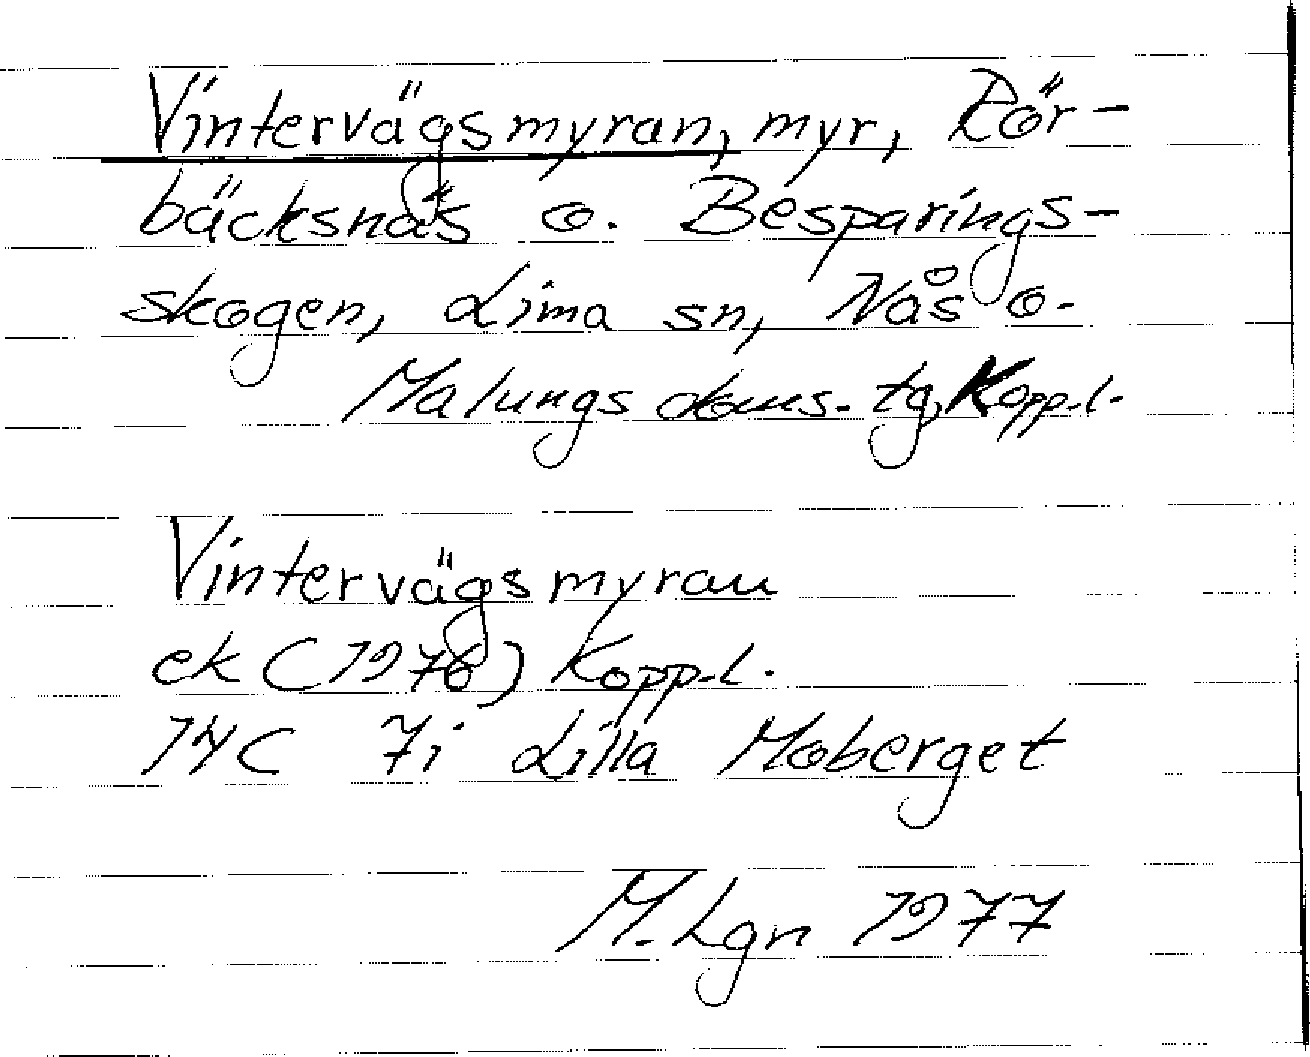 Vintervägsmyran, myr, Rör-
bäcksnäs o. Besparings-
skogen, Lima sn, Nås o.
Malungs doms. tg, Kopp.l.
Vintervägsmyran
ek (1976) Kopp.l.
14C 7i Lilla Moberget
M. Lgn 1977